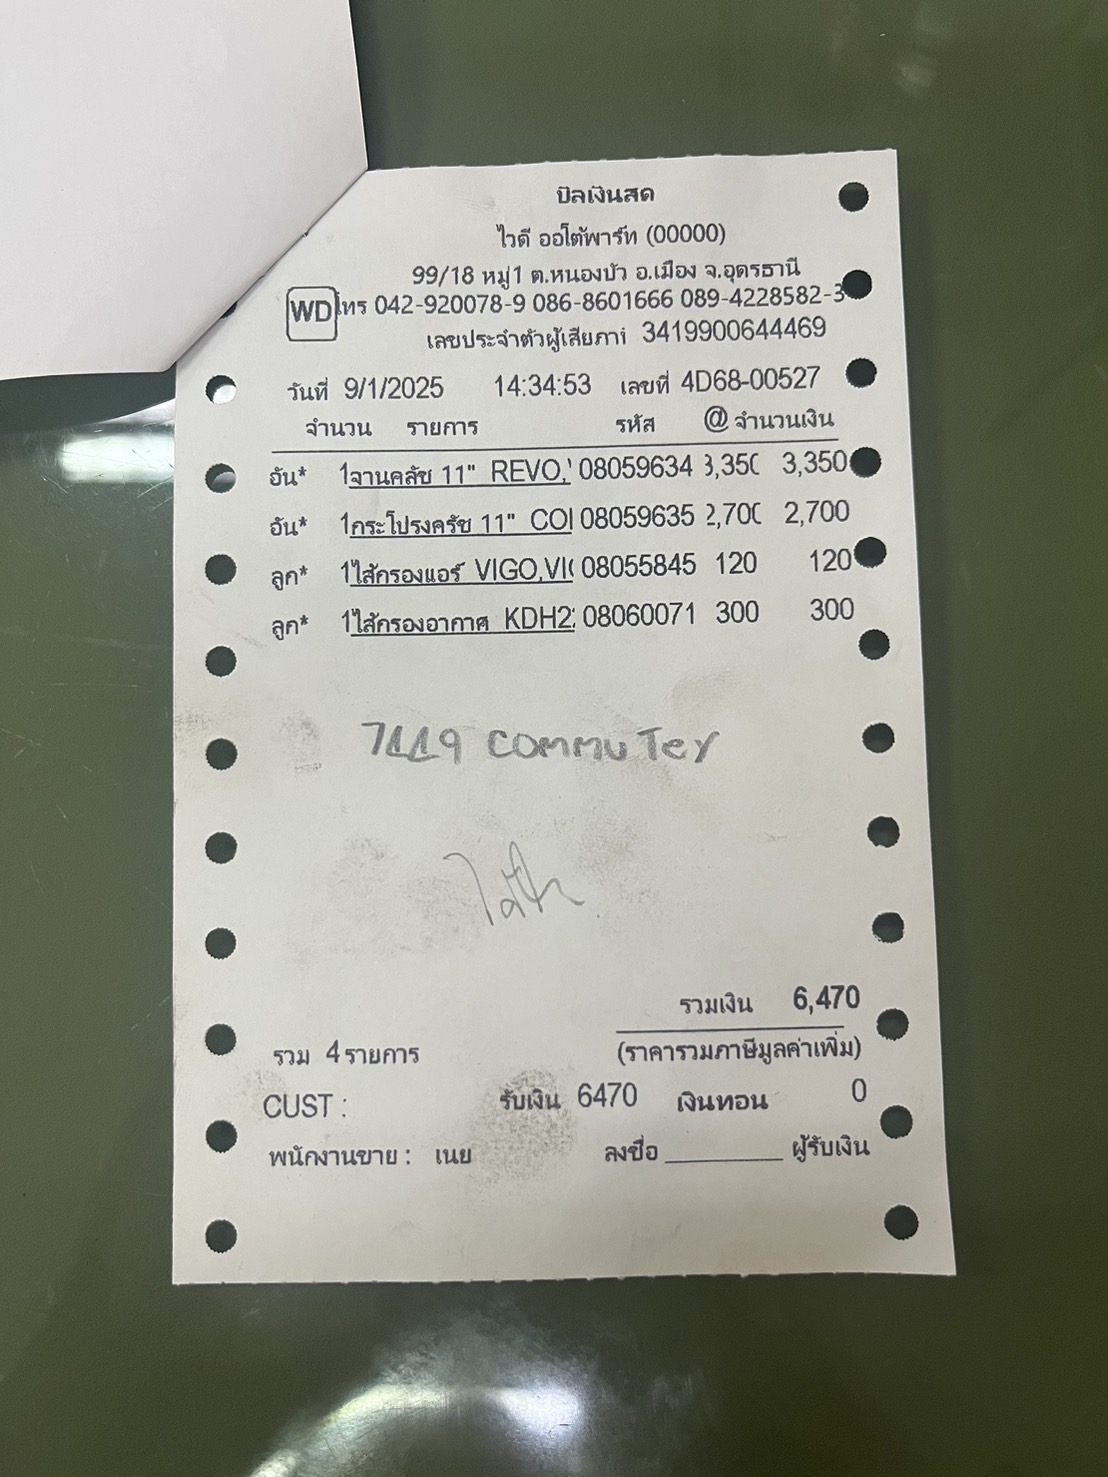 บิลเงินสด
ไวดี ออโต้พาร์ท (00000)
99/18 หมู่1 ต.หนองบัว อ.เมือง จ.อุดรธานี
WD โทร 042-920078-9 086-8601666 089-4228582-3
เลขประจำตัวผู้เสียภาษี 3419900644469
วันที่ 9/1/2025 14:34:53 เลขที่ 4D68-00527
จำนวน รายการ รหัส @ จำนวนเงิน
อัน* 1 จานคลัช 11" REVO, 08059634 3,350 3,350
อัน* 1 กระโปรงครัช 11" COI 08059635 2,700 2,700
ลูก* 1 ไส้กรองแอร์ VIGO,VI 08055845 120 120
ลูก* 1 ไส้กรองอากาศ KDH2 08060071 300 300
7119 commuTer
รวมเงิน 6,470
รวม 4 รายการ (ราคารวมภาษีมูลค่าเพิ่ม)
CUST : รับเงิน 6470 เงินทอน 0
พนักงานขาย : เนย ลงชื่อ ________ ผู้รับเงิน